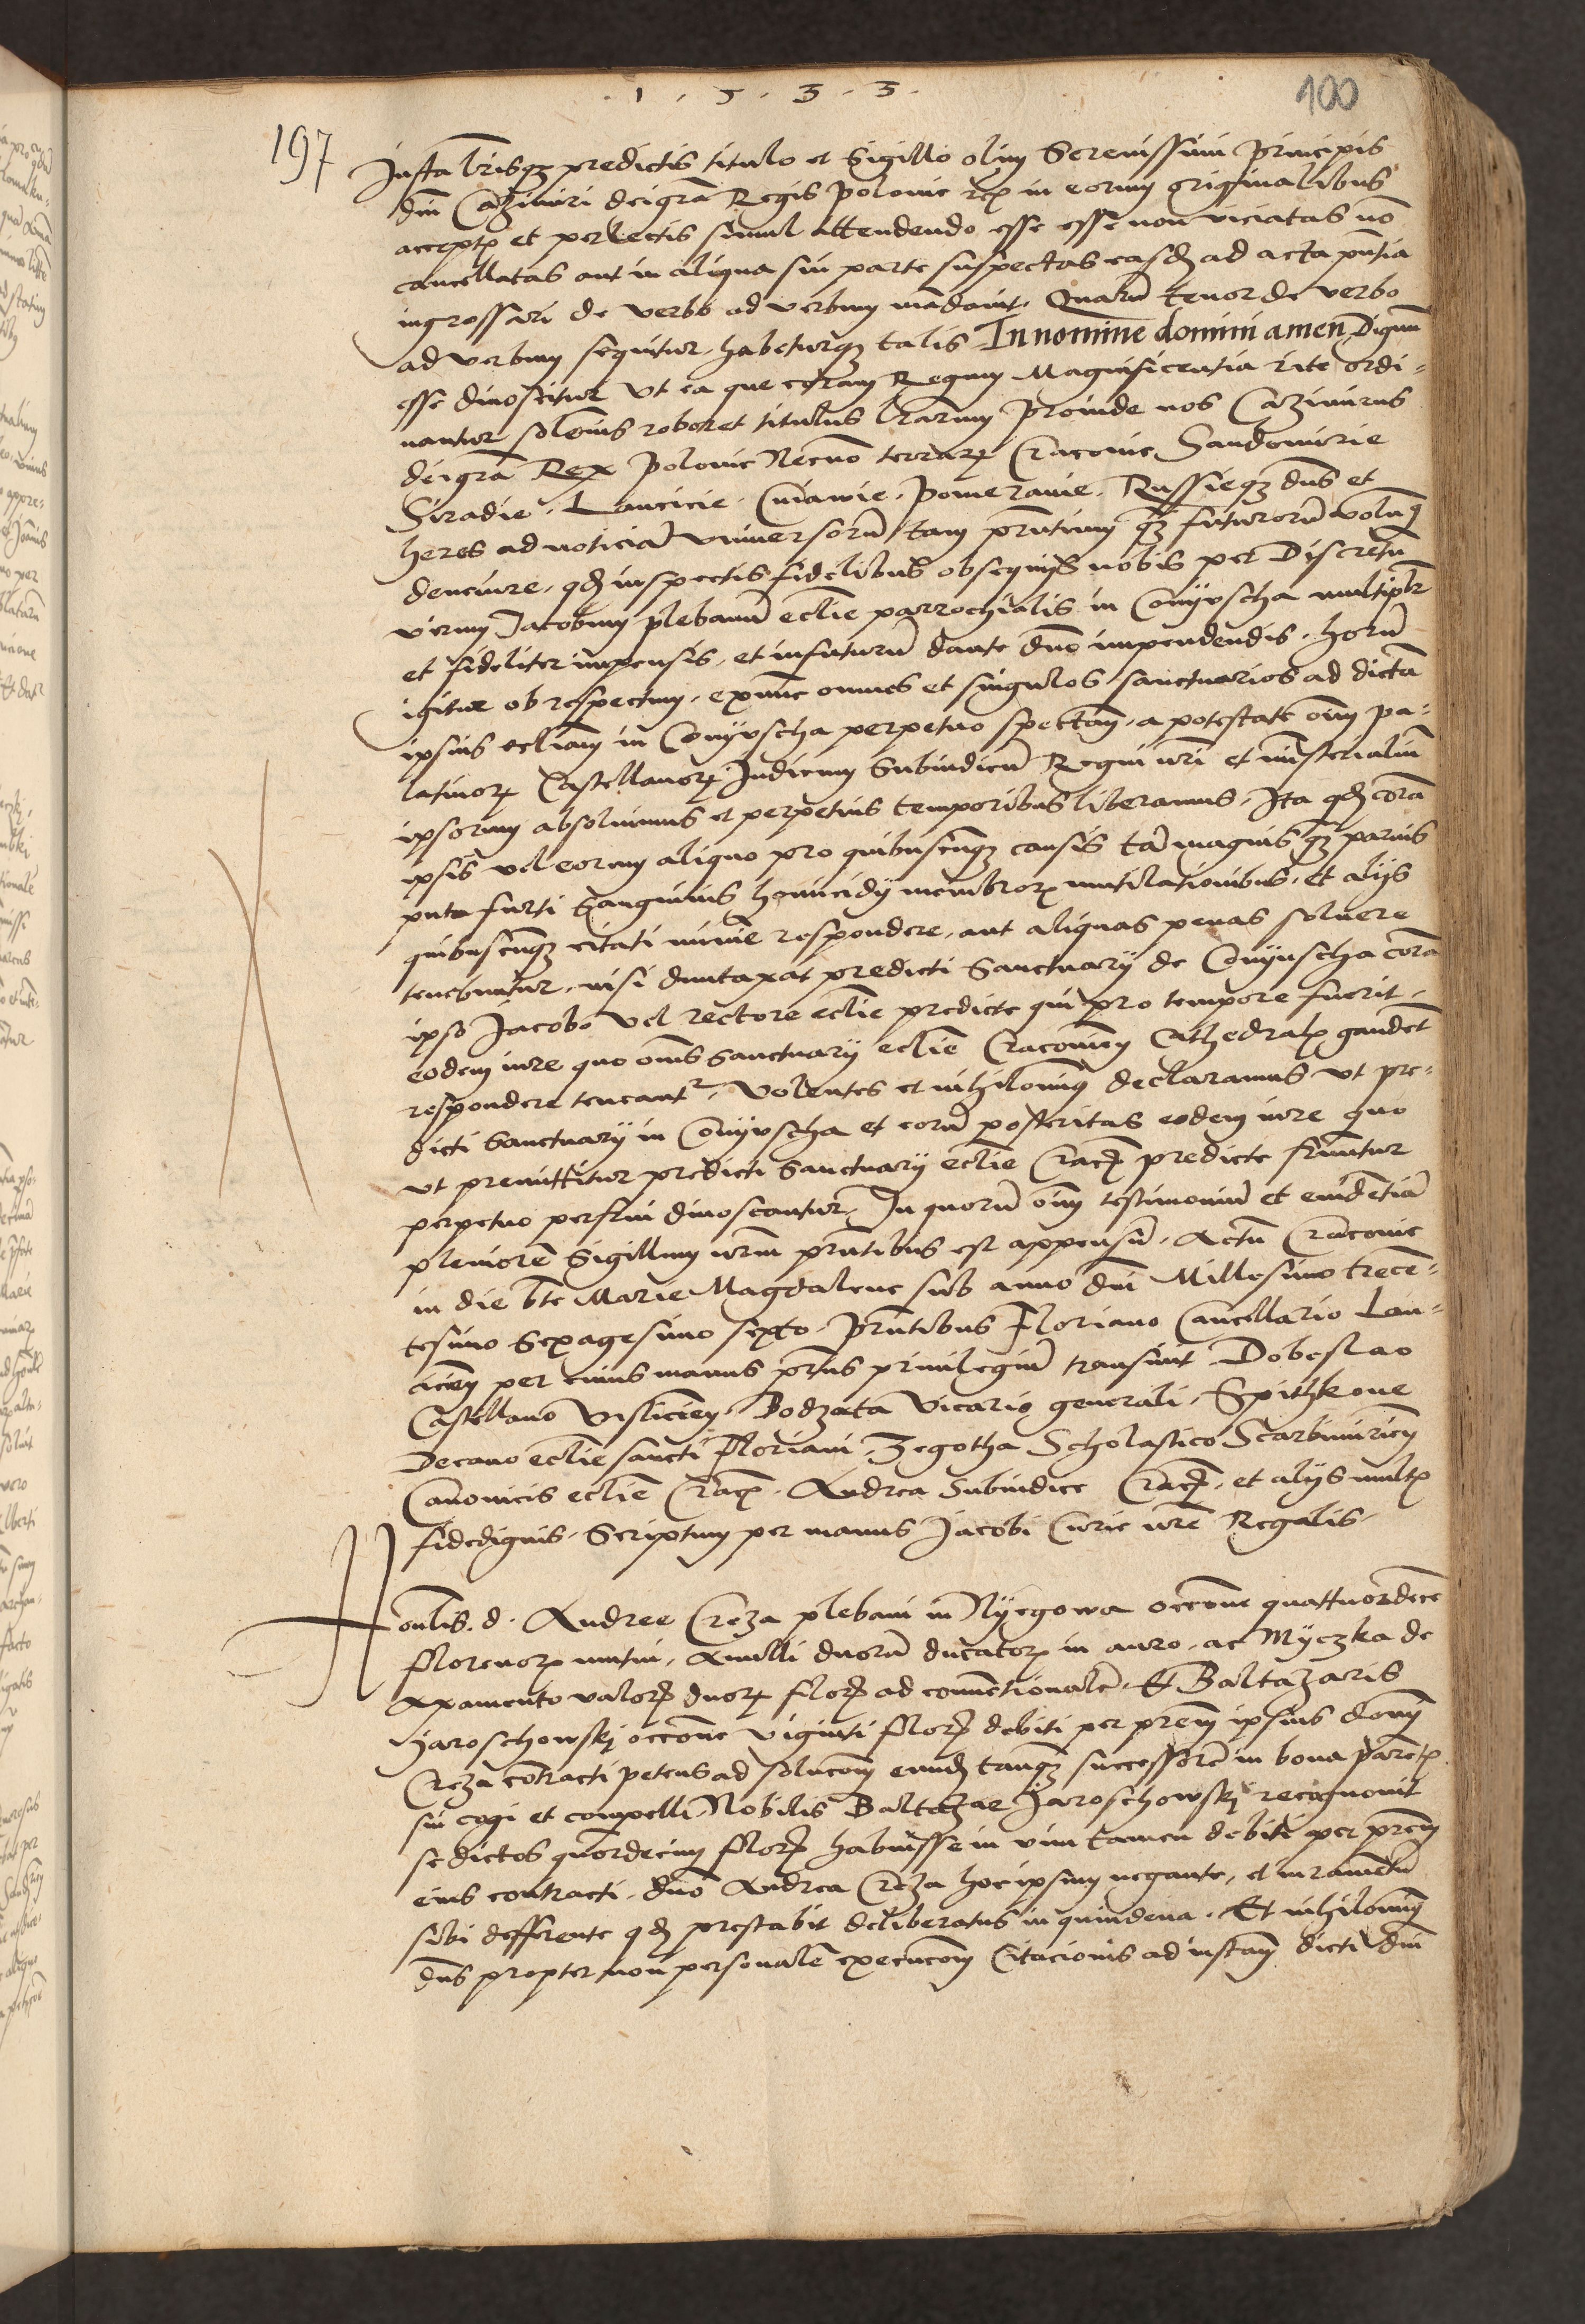 1 . 5 . 3 . 3 .
100
197
Insta lrisqz predictis titulo et Sigillo olim Serenissimi principis
dni Cazimiri dei gra Regis Polonie etc in eorum originalibus
acceptis et perlectis simul attendendo esse esse non viciatas no
cancellatas aut in aliqua sui parte suspectas easdem ad acta pntia
ingrossari de verbo ad verbum mandavit. Quaru tenor de verbo
ad verbum sequitur habeturqz talis In nomine domini amen Dignum
esse dinoscitur Ut ea que coram Regum Magnificentia rite ordi-
nantur solennis roboret titulus lrarum Proinde nos Cazimirus
dei gra Rex Polonie Necno terrarum Cracovie Sandomirie
Siradie. Lancicie. Cuiavie. Pomeranie. Russieqz dns et
heres ad noticia universoru tam pntium qz futuroru volumus
devenire, qd inspectis fidelibus obsequijs nobis per Discretu
virum Jacobum plebanu eclie parrochialis in Conyuscha multiplr
et fideliter impensis, et in futuru dante dno impendendis. horu
igitur ob respectum, ex nunc omnes et singulos sanctuarios ad dicta
ipsius ecliam in Conyuscha perpetuo spectan, a potestate oim pa-
latinor Castellanor Judicum Subiudicu Regni nri et ministerialiu
ipsorum absolvimus et perpetuis temporibus liberamus, Ita qd cora
ipsis vel eorum aliquo pro quibuscunqz causis ta magnis qz parvis
puta furti sanguinis homicidij membror mutilationibus, et alijs
quibuscunqz citati minime respondere, aut aliquas penas solvere
tenebuntur, nisi duntaxat predicti Sanctuarij de Conyuscha cora
ipso Jacobo vel rectore eclie predicte qui pro tempore fuerit,
eodem iure quo oms sanctuarij eclie Cracovien Cathedralis gaudet
respondere teneant. Volentes et nihilominus declaramus ut pre-
dicti Sanctuarij in Conyuscha et eoru posteritas eodem iure quo
ut premittitur predicti Sanctuarij eclie Crac predicte fruuntur
perpetuo perfrui dinoscantur, In quoru oim testimoniu et evidentia
pleniore Sigillum nrum pntibus est appensu. Actu Cracovie
in die bte Marie Magdalene sub anno dni Millesimo trecen-
tesimo Sexagesimo sexto. Pntibus Floriano Cancellario Lan-
cicien per cuius manus pns privilegiu transivit Dobeslao
Castellano Vislicien, Bodzata Vicario generali, Spithkone
Decano eclie sancti Floriani, Zegotha Scholastico Scarbimirien
Canonicis eclie Crac. Andrea Subiudice Crac. et alijs multis
fidedignis. Scriptum per manus Jacobi Curie nre Regalis.
Honlis. d. Andree Creza plebani in Nyegowa occone quattuordece
florenor mutui, Anulli duoru ducator in auro, ac Myczka de
axamento valor duor flor ad conventionale. Et Baltazaris
Jaroschowskj occone viginti flor debiti per prem ipsius domi
Creza contracti petens ad solucom eund tanqz successore in bona parentis
sui cogi et compelli Nobilis Baltazar Jaroschowskj recognovit
se dictos quordecim flor habuisse in vim tamen debiti per prem
eius contracti, dno Andrea Creza hoc ipsum negante, et iuramentu
sibi defferente qd prestabit deliberatus in quindena. Et nihilominus
dns propter non personale execucom Citacionis ad instam dicti dni